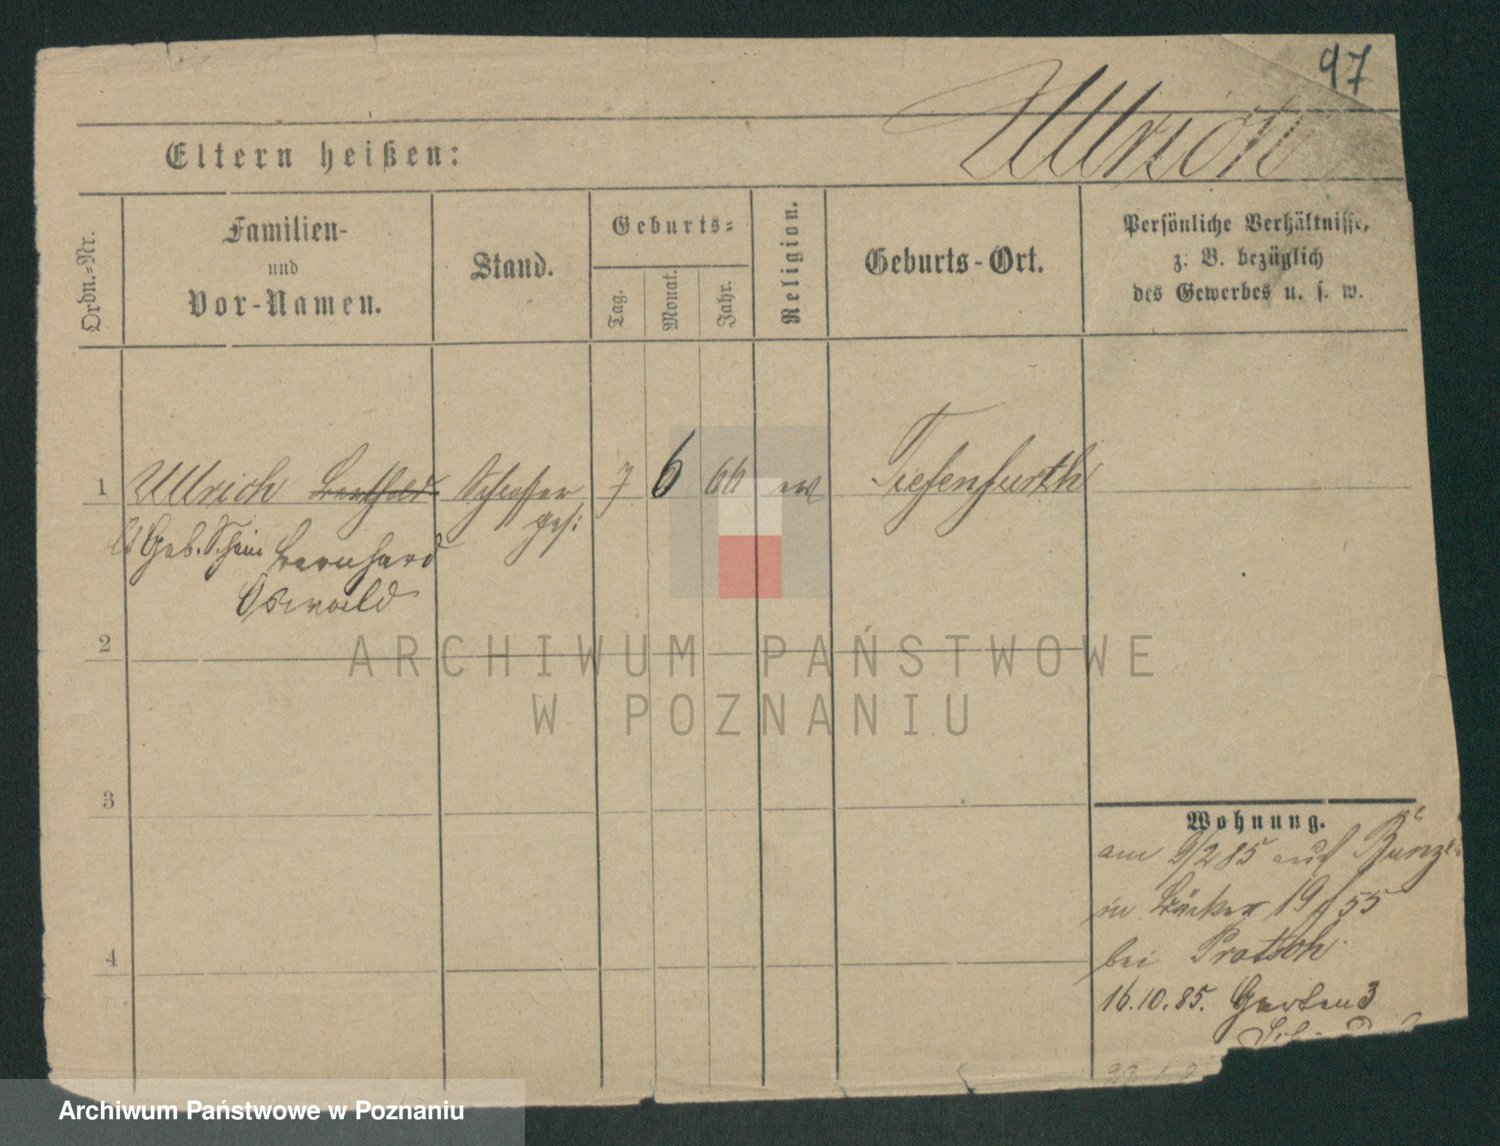 97
Ullrich
Eltern heißen:
Ordn.-Nr.
Familien-
und
Vor-Namen.
Stand.
Geburts-
Tag.
Monat.
Jahr.
Religion.
Geburts-Ort.
Persönliche Verhältnisse,
z. B. bezüglich
des Gewerbes u. s. w.
1 Ullrich Berthold Schlosser 7 6 66 ev Tiefenfurth
ges:
Geb. Schein Bernhard
Oswald
2
3
4
Wohnung.
am 9/2 85 auf
in Bäcker 19 55
bei
16.10.85. Garten 3
ARCHIWUM PAŃSTWOWE
W POZNANIU
Archiwum Państwowe w Poznaniu